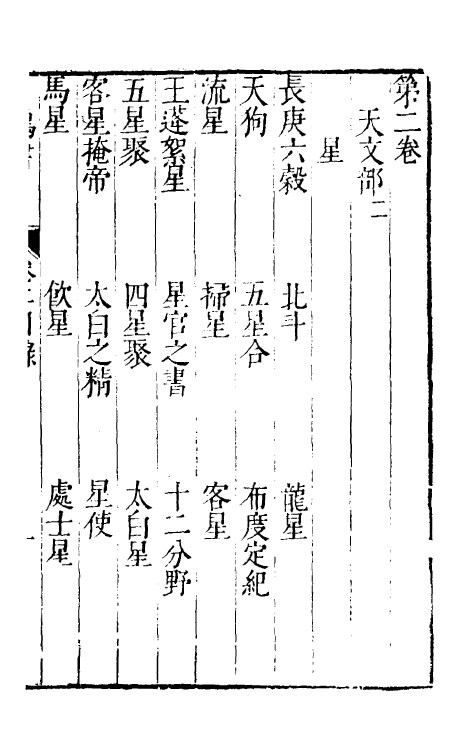 第二卷
天文部二
星
長庚六穀 北斗 龍星
天狗 五星合 布度定紀
流星 掃星 客星
王蓬絮星 星官之書 十二分野
五星聚 四星聚 太白星
客星掩帝 太白之精 星使
馬星 飲星 處士星